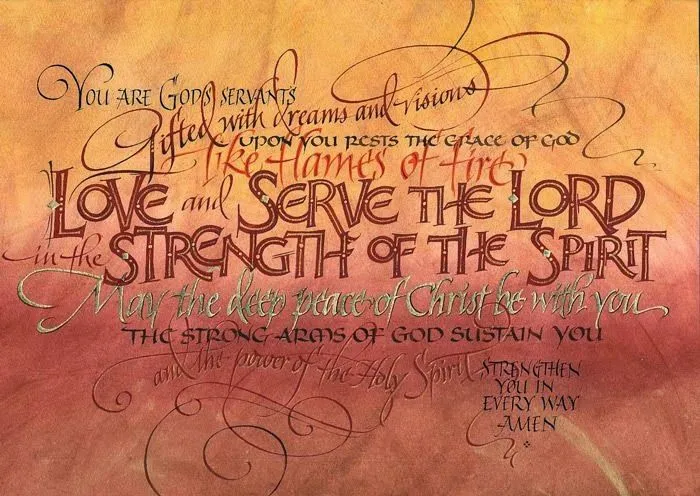 YOU ARE GOD'S SERVANTS
Gifted with dreams and visions
UPON YOU RESTS THE GRACE OF GOD
like flames of fire
LOVE and SERVE THE LORD
in the STRENGTH OF THE SPIRIT
May the deep peace of Christ be with you
THE STRONG ARMS OF GOD SUSTAIN YOU
and the power of the Holy Spirit
STRENGTHEN
YOU IN
EVERY WAY
AMEN